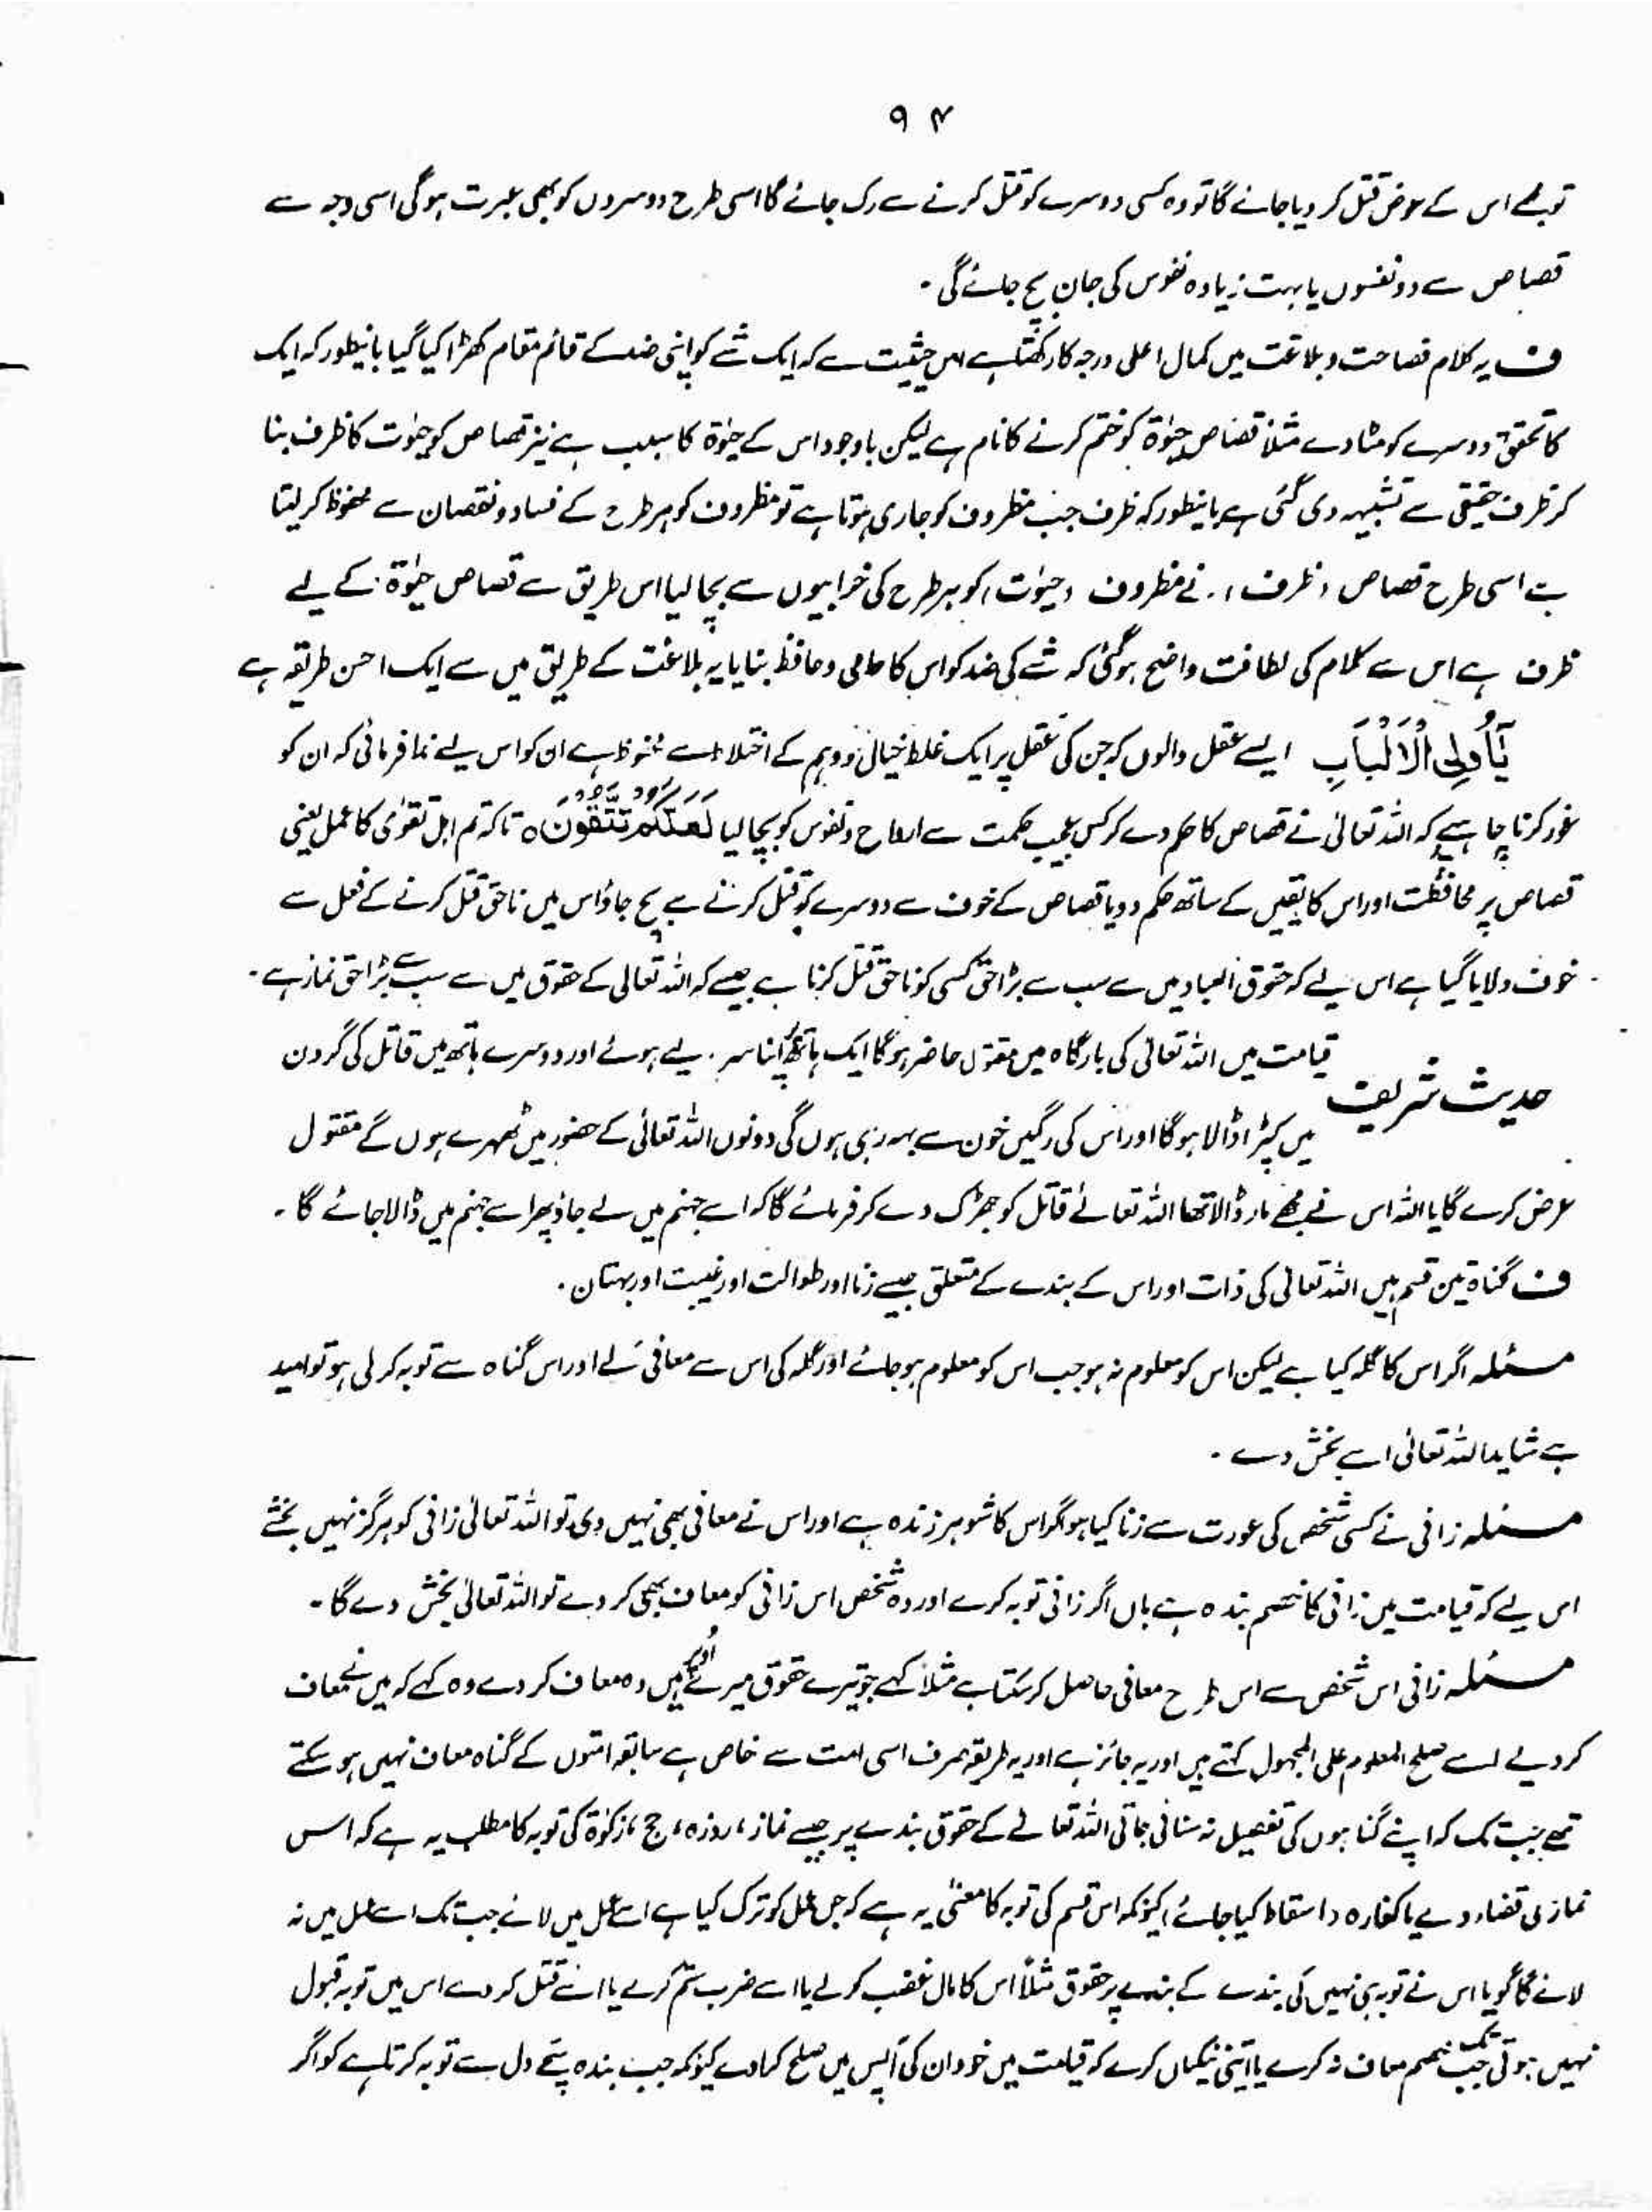 ۹۴
تو مجھے اس کے عوض قتل کر دیا جائے گا تو وہ کسی دوسرے کو قتل کرنے سے رک جائے گا اسی طرح دوسروں کو بھی عبرت ہوگی اسی وجہ سے
قصاص سے دو نفسوں یا بہت زیادہ نفوس کی جان بچ جائے گی ۔
ف یہ کلام فصاحت و بلاغت میں کمال اعلی درجہ کا رکھتا ہے اس حیثیت سے کہ ایک شے کو اپنی ضد کے قائم مقام کھڑا کیا گیا بانیطور کہ ایک
کا تحقق دوسرے کو مٹا دے مثلاً قصاص حیٰوۃ کو ختم کرنے کا نام ہے لیکن باوجود اس کے حیٰوۃ کا سبب ہے نیز قصاص کو حیٰوت کا ظرف بنا
کر ظرف حقیقی سے تشبیہہ دی گئی ہے بانیطور کہ ظرف جب مظروف کو حاری ہوتا ہے تو مظروف کو ہر طرح کے فساد و نقصان سے محفوظ کر لیتا
ہے اسی طرح قصاص (ظرف) نے مظروف (حیٰوت) کو ہر طرح کی خرابیوں سے بچا لیا اس طریق سے قصاص حیٰوۃ کے لیے
ظرف ہے اس سے کلام کی لطافت واضح ہوگئی کہ شے کی ضد کو اس کا حامی و محافظ بنایا یہ بلاغت کے طریق میں سے ایک احسن طریقہ ہے
يٰٓاُولِى الْاَلْبَابِ ایسے عقل والوں کہ جن کی عقل پر ایک غلط خیال و وہم کے اختلاط سے محفوظ ہے ان کو اس لیے ندا فرمائی کہ ان کو
غور کرنا چاہیے کہ اللہ تعالیٰ نے قصاص کا حکم دے کر کس عجیب حکمت سے ارواح و نفوس کو بچا لیا لَعَلَّكُمْ تَتَّقُوْنَ ہ تاکہ تم اہل تقویٰ کا عمل یعنی
قصاص پر محافظت اور اس کا یقیں کے ساتھ حکم دو یا قصاص کے خوف سے دوسرے کو قتل کرنے سے بچ جاؤ اس میں ناحق قتل کرنے کے فعل سے
خوف دلایا گیا ہے اس لیے کہ حقوق العباد میں سے سب سے بڑا حق کسی کو ناحق قتل کرنا ہے جیسے کہ اللہ تعالی کے حقوق میں سے سب سے بڑا حق نماز ہے ۔
حدیث شریف قیامت میں اللہ تعالیٰ کی بارگاہ میں مقتول حاضر ہوگا ایک ہاتھ پر اپنا سر لیے ہوئے اور دوسرے ہاتھ میں قاتل کی گردن
میں کپڑا ڈالا ہوگا اور اس کی رگیں خون سے بہہ رہی ہوں گی دونوں اللہ تعالیٰ کے حضور میں ٹھہرے ہوں گے مقتول
عرض کرے گا یا اللہ اس نے مجھے مار ڈالا تھا اللہ تعالےٰ قاتل کو جھڑک دے کر فرمائے گا کہ اسے جہنم میں لے جاؤ پھر اسے جہنم میں ڈالا جائے گا ۔
ف گناہ تین قسم ہیں اللہ تعالیٰ کی ذات اور اس کے بندے کے متعلق جیسے زنا اور طوالت اور غیبت اور بہتان ۔
مسئلہ اگر اس کا گلہ کیا ہے لیکن اس کو معلوم نہ ہو جب اس کو معلوم ہو جائے اور گلہ کی اس سے معافی لے اور اس گناہ سے توبہ کر لی ہو تو امید
ہے شاید اللہ تعالیٰ اسے بخش دے ۔
مسئلہ زانی نے کسی شخص کی عورت سے زنا کیا ہو اگر اس کا شوہر زندہ ہے اور اس نے معافی بھی نہیں دی تو اللہ تعالیٰ زانی کو ہرگز نہیں بخشے
اس لیے کہ قیامت میں زانی کا خصم بندہ ہے ہاں اگر زانی توبہ کرے اور وہ شخص اس زانی کو معاف بھی کر دے تو اللہ تعالیٰ بخش دے گا ۔
مسئلہ زانی اس شخص سے اس طرح معافی حاصل کر سکتا ہے مثلاً کہے جو تیرے حقوق میرے اوپر ہیں وہ معاف کر دے وہ کہے کہ میں نے معاف
کر دیے اسے صلح المعلوم علی المجہول کہتے ہیں اور یہ جائز ہے اور یہ طریقہ صرف اسی امت سے خاص ہے سابقہ امتوں کے گناہ معاف نہیں ہو سکتے
تھے جب تک کہ اپنے گناہوں کی تفصیل نہ سنائی جاتی اللہ تعالےٰ کے حقوق بندے پر جیسے نماز، روزہ، حج، زکوٰۃ کی توبہ کا مطلب یہ ہے کہ اس
نماز کی قضاء دے یا کفارہ داسقاط کیا جائے کیونکہ اس قسم کی توبہ کا معنیٰ یہ ہے کہ جس عمل کو ترک کیا ہے اسے عمل میں لائے جب تک اسے عمل میں نہ
لائے گا گویا اس نے توبہ ہی نہیں کی بندے کے بندے پر حقوق مثلاً اس کا مال غصب کر لے یا اسے ضرب شتم کرے یا اسے قتل کر دے اس میں توبہ قبول
نہیں ہوتی جب تک خصم معاف نہ کرے یا اتنی نیکیاں کرے کہ قیامت میں خود ان کی آپس میں صلح کرا دے کیونکہ جب بندہ سچے دل سے توبہ کرتا ہے کو اگر